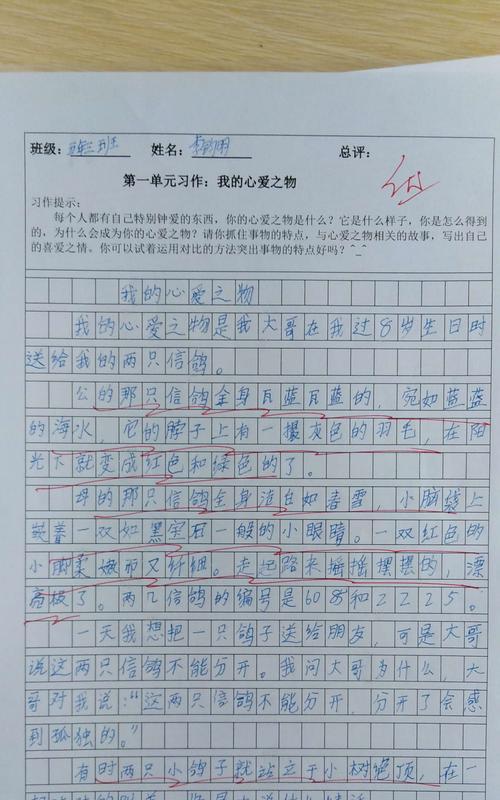 班级： 姓名： 总评：
第一单元习作：我的心爱之物
习作提示：
每个人都有自己特别钟爱的东西，你的心爱之物是什么？它是什么样子，你是怎么得到
的，为什么会成为你的心爱之物？请你抓住事物的特点，与心爱之物相关的故事，写出自己
的喜爱之情。你可以试着运用对比的方法突出事物的特点好吗？^_^
我的心爱之物
我的心爱之物是我大哥在我过8岁生日时
送给我的两只信鸽。
公的那只信鸽全身瓦蓝瓦蓝的，宛如蓝蓝
的海水，它的脖子上有一撮灰色的羽毛，在阳
光下就变成红色和绿色的了。
母的那只信鸽全身洁白如春雪，小脑袋上
装着一双如黑宝石一般的小眼睛。一双红色的
小脚柔嫩而又纤细。走起路来摇摇摆摆的，漂
亮极了。两只信鸽的编号是608和2225。
一天我想把一只鸽子送给朋友，可是大哥
说这两只信鸽不能分开。我问大哥为什么，大
哥对我说：“这两只信鸽不能分开，分开了会感
到孤独的。”
有时两只小鸽子就站立于小树枝顶，在一